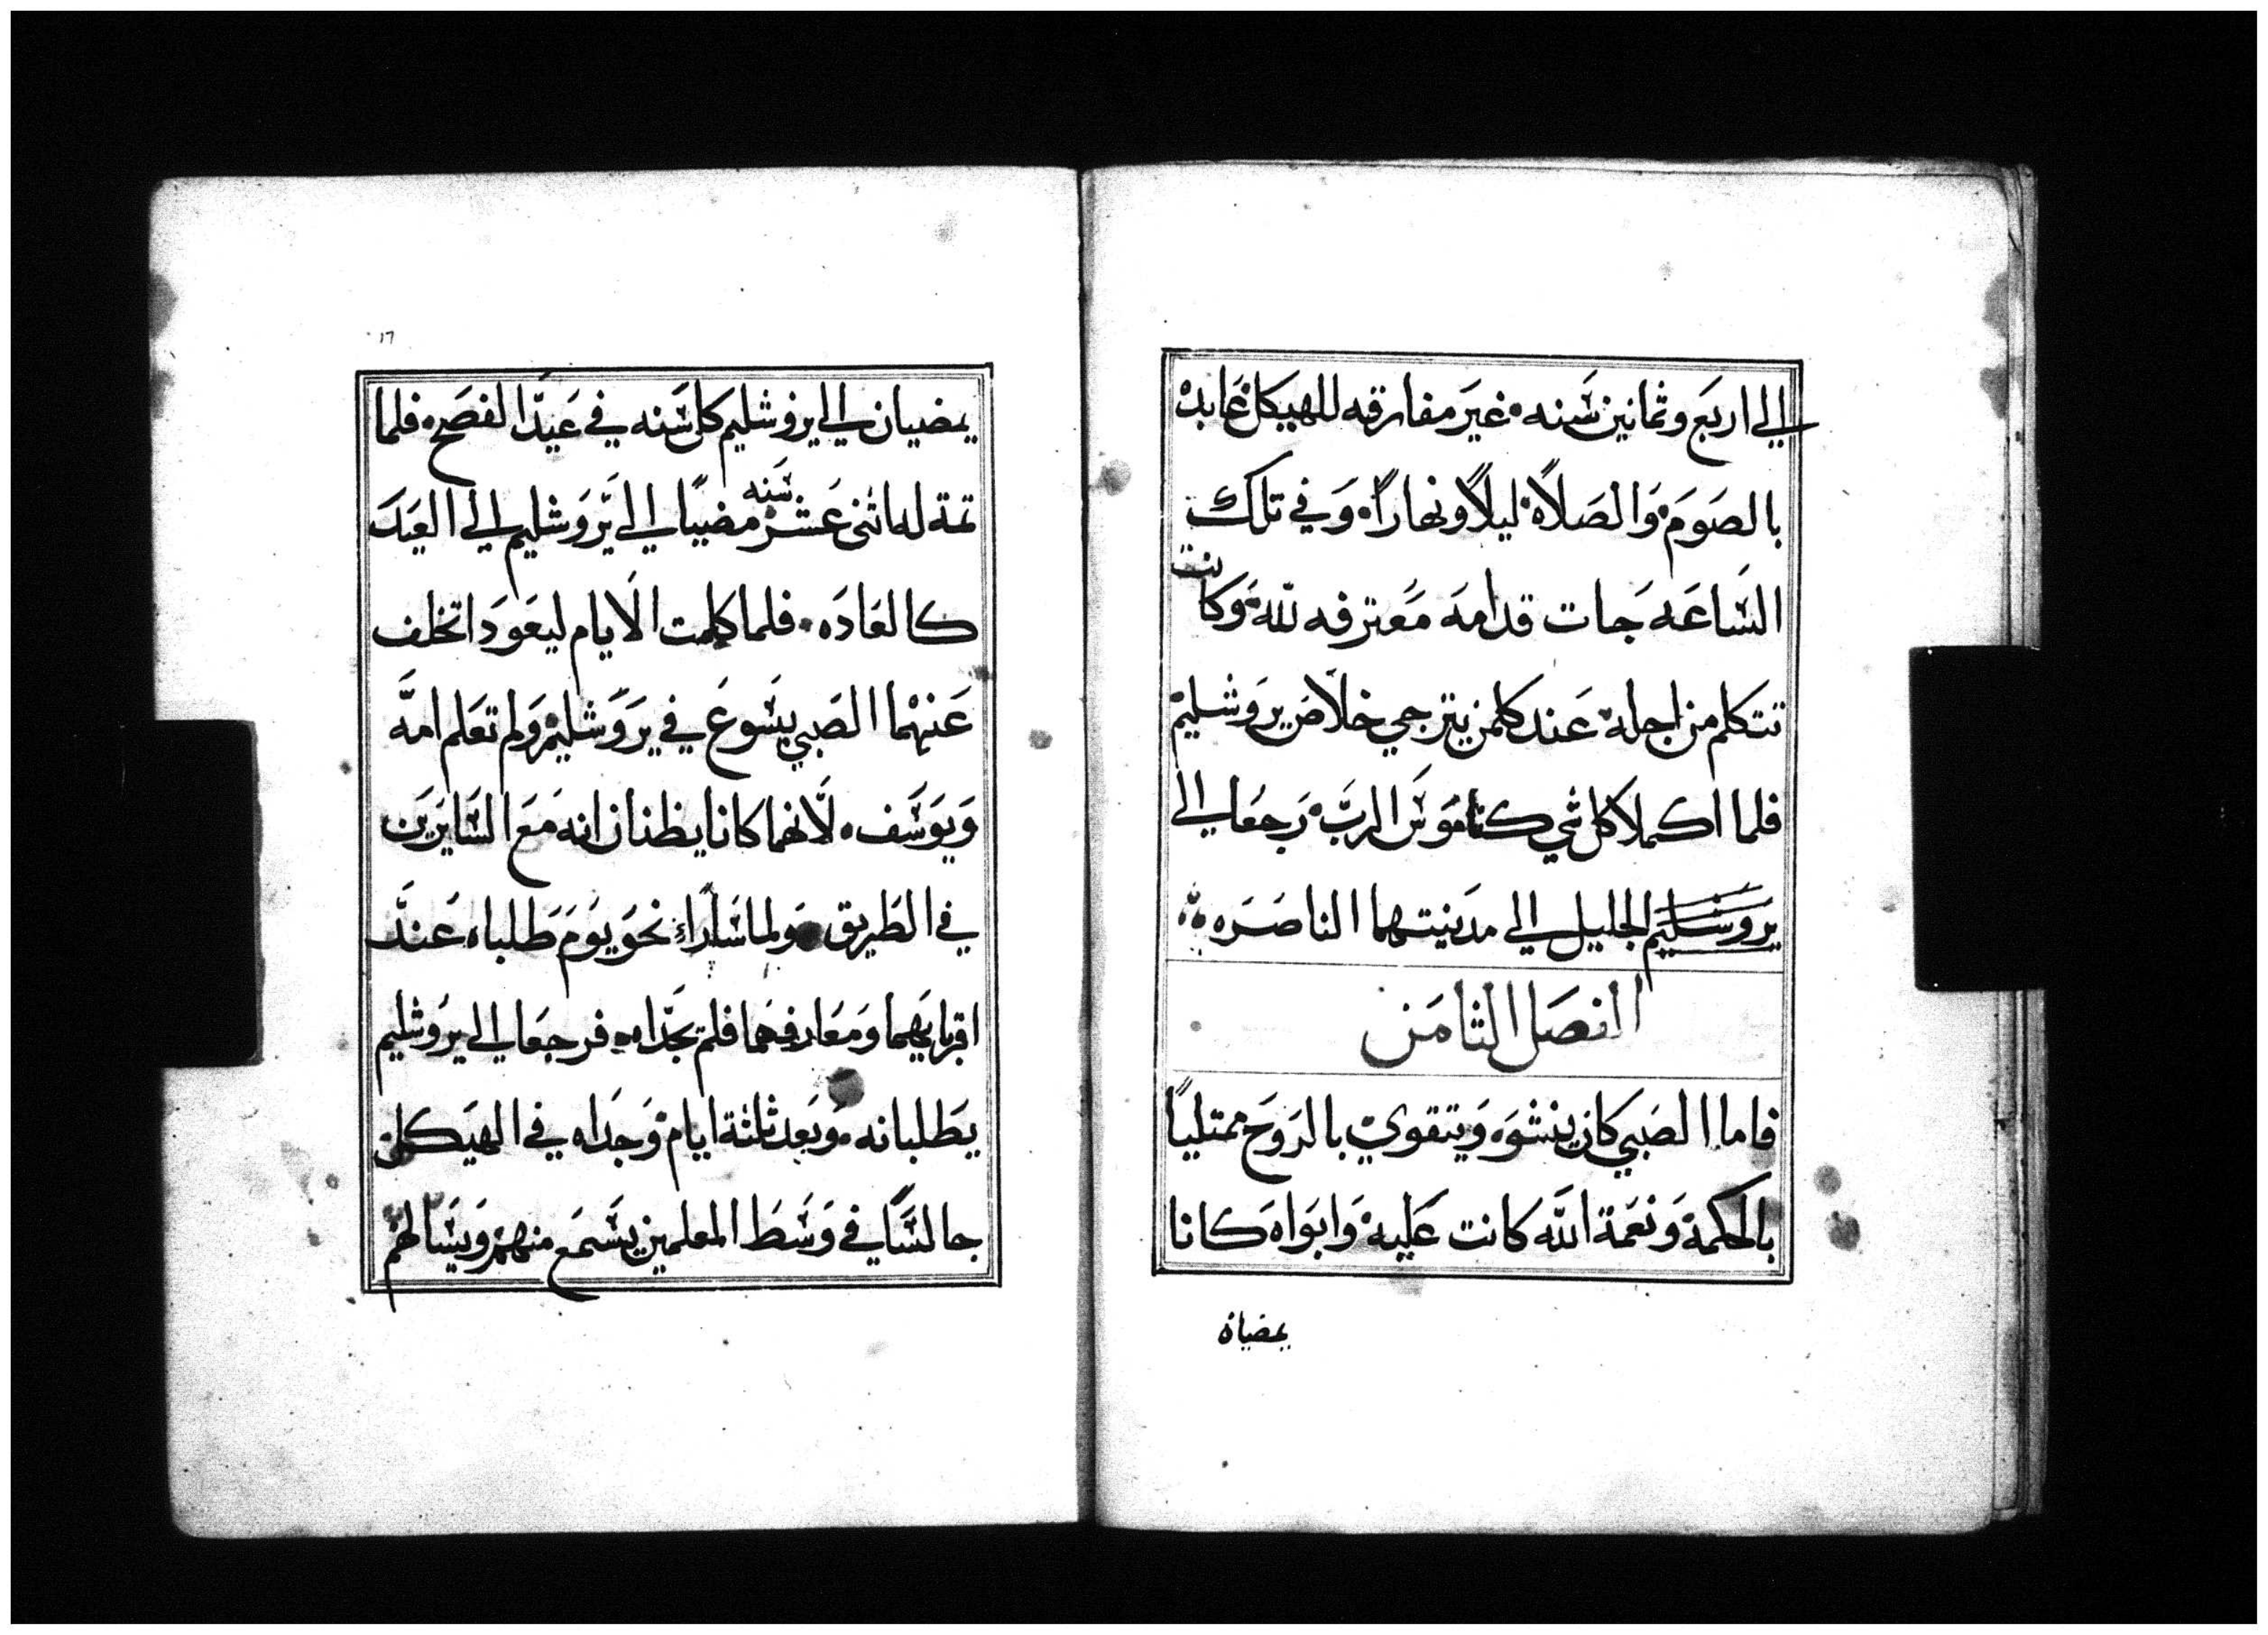 الي اربَع وثمانين سَنه۰ غيَر مفارقه للهيكل عَابده
بالصَومَ۰ وَالصَلاَة۰ ليلاً ونهاراً۰ وَفي تلك
السَاعَه جات قدامهَ مَعترفه لله۰ وَكانت
تتكلم من اجله۰ عَند كلمن يترجي خلاَصَ يرَوشليم۰
فلما اكملا كل شي كناموَسَ الربَ۰ رَجعَا الي
يرَوسَليم الجليل الي مدَينتهما الناصَرَه
الفصَل الثامَن
فاما الصَبي كان ينشوَه وَيتقوي۰ بالرَوحَ ممتلياً
بالحكمة۰ وَنعَمة اللَه كانت عَليه۰ وَابوَاهَ كانا
يمضيان
١٦
يمضيان الي يروشليم كل سَنه في عَيدَ الفصَح۰ فلما
تمة له اثنى عَشر سَنه مضيَا الي يرَوَشليم الي العَيَد
كالعَادَه۰ فلما كلمت الاَيام ليعَودَا تخلف
عَنهْما الصَبي يسَوعَ في يرَوَشليمْ وَلم تعَلم امَه
وَيوَسَف۰ لاَنهما كانا يظنان انه مَعَ السَايرَين
في الطَريق۰ وَلما سَارَا نحوَ يوَمَ طَلباه عَندَ
اقربايهما وَمَعَارفهَما فلم يجَداه۰ فرجعَا الي يروَشليم
يطَلبانه۰ وَبعَد ثلثة ايام۰ وَجدَاه في الهيَكل
جالسَاً في وَسَطَ المعلمين يسَمعَ منهمْ وَيسَالهمْ